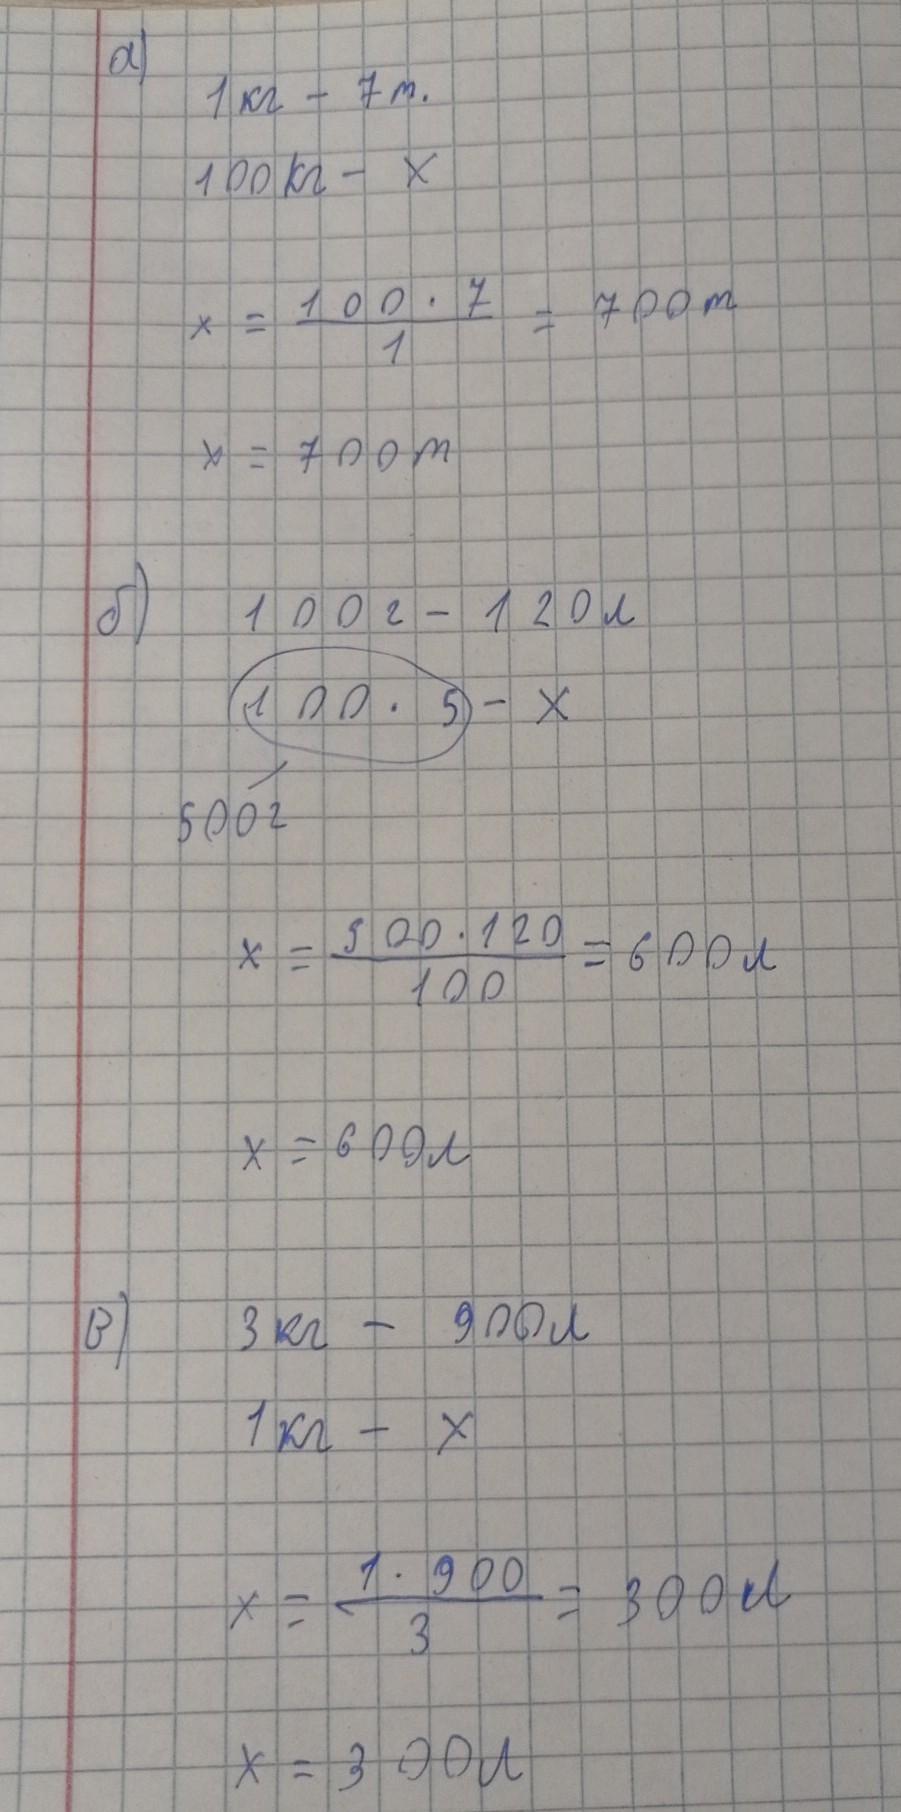 а)
1кг - 7т.
100кг - х
х = 100 · 7 / 1 = 700т
х = 700т
б) 100г - 120л
100 · 5 - х
500г
х = 500·120 / 100 = 600л
х = 600л
в) 3кг - 900л
1кг - х
х = 1 · 900 / 3 = 300л
х = 300л